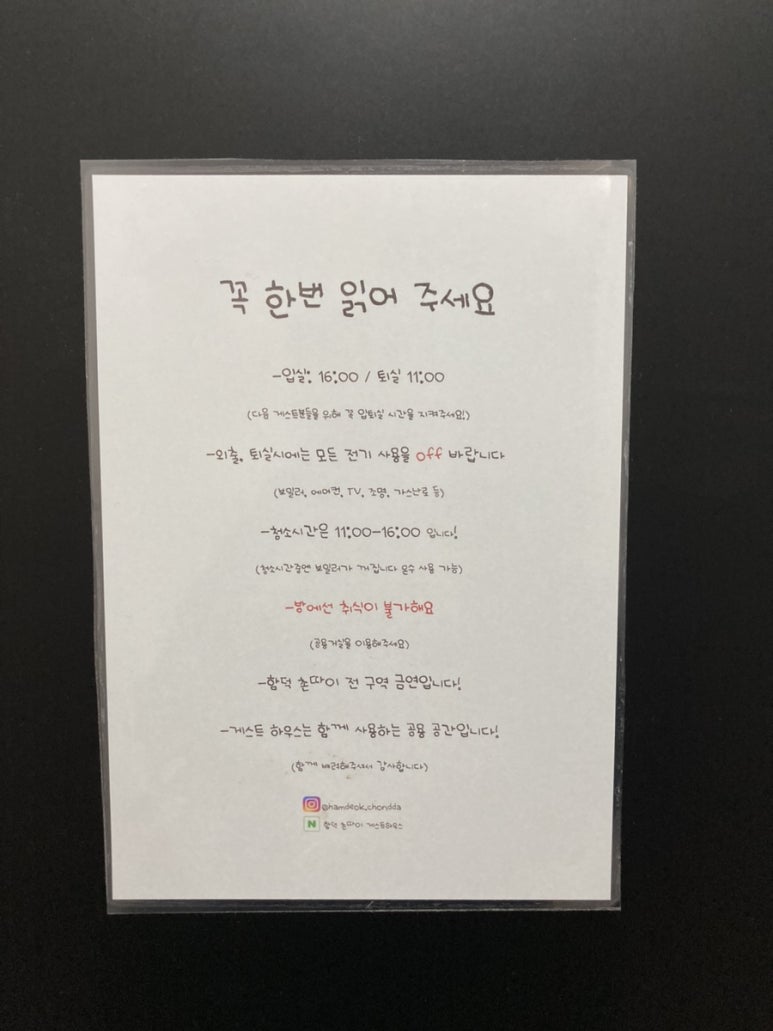 꼭 한번 읽어 주세요
-입실: 16:00 / 퇴실 11:00
(다음 게스트분들을 위해 꼭 입퇴실 시간을 지켜주세요!)
-외출, 퇴실시에는 모든 전기 사용을 off 바랍니다
(보일러, 에어컨, TV, 조명, 가스난로 등)
-청소시간은 11:00-16:00 입니다!
(청소시간중엔 보일러가 꺼집니다 온수 사용 가능)
-방에선 취식이 불가해요
(공용거실을 이용해주세요)
-함덕 촌따이 전 구역 금연입니다!
-게스트 하우스는 함께 사용하는 공용 공간입니다!
(함께 배려해주셔서 감사합니다)
@hamdeok_chondda
N 함덕 촌따이 게스트하우스